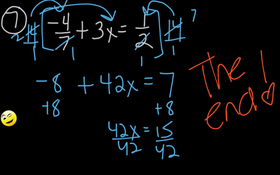 7 14 [ -4/7 + 3x = 1/2 ] 14 7
-8 + 42x = 7
+8 +8
42x = 15
42 42
The
end